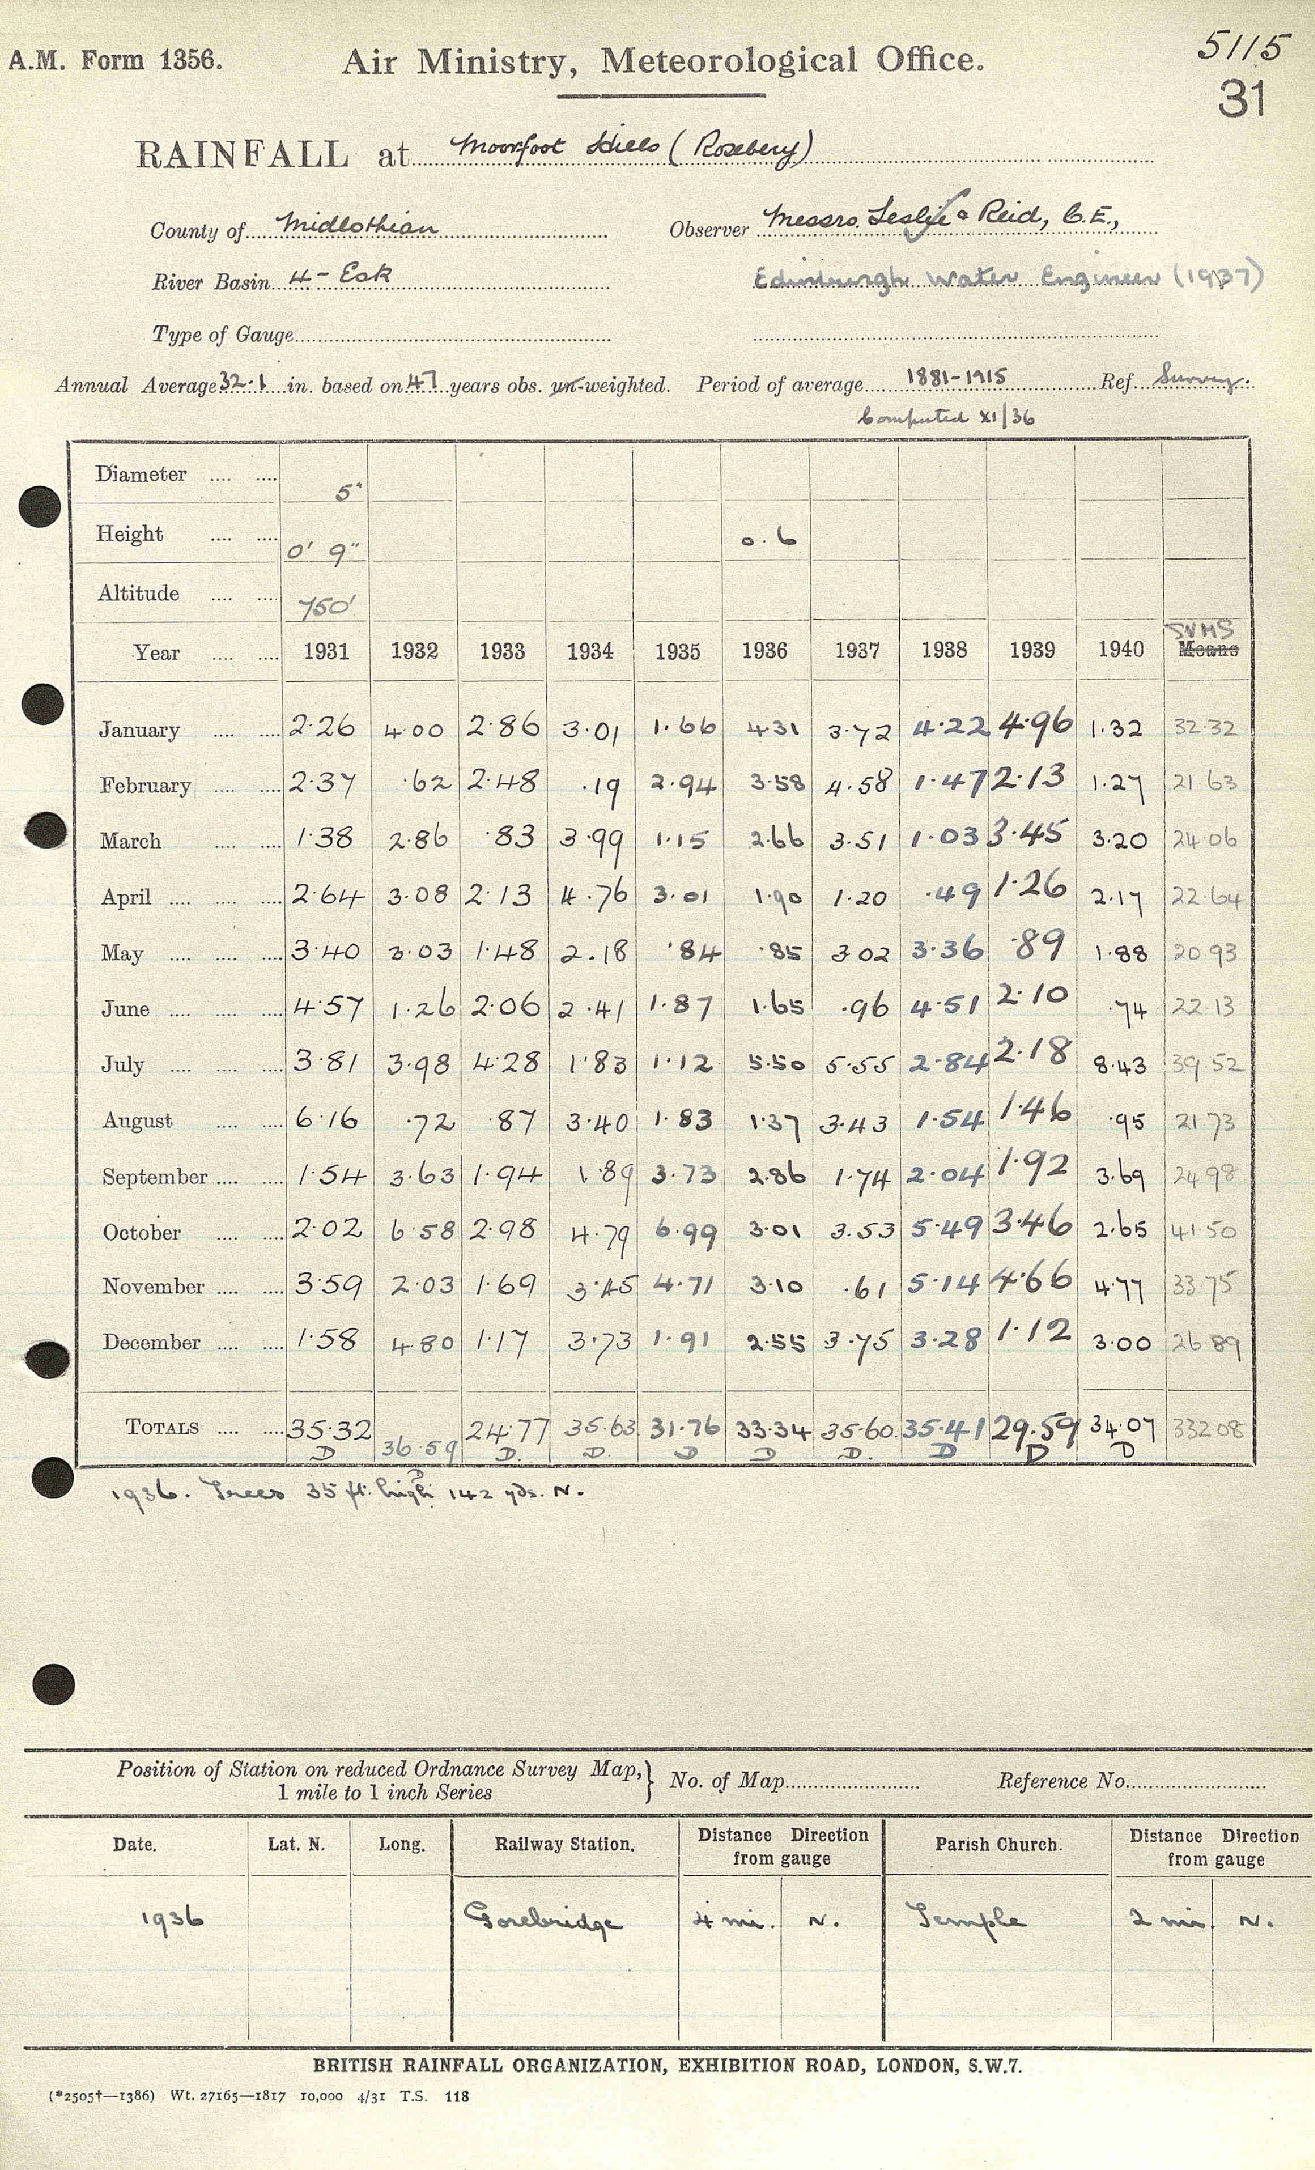 A.M. Form 1356.
Air Ministry, Meteorological Office.
5115
31
RAINFALL at Moorfoot Hills (Rosebery)
County of Midlothian Observer Messrs. Leslie & Reid, C.E.,
River Basin 4 - Esk Edinburgh Water Engineer (1937)
Type of Gauge
Annual Average 32.1 in. based on 47 years obs. un-weighted. Period of average 1881-1915 Ref. Survey.
Computed XI/36
Diameter 5"
Height 0' 9" 0.6
Altitude 750'
Year 1931 1932 1933 1934 1935 1936 1937 1938 1939 1940 SUMS Means
January 2.26 4.00 2.86 3.01 1.66 4.31 3.72 4.22 4.96 1.32 32.32
February 2.37 .62 2.48 .19 2.94 3.58 4.58 1.47 2.13 1.27 21 63
March 1.38 2.86 .83 3.99 1.15 2.66 3.51 1.03 3.45 3.20 24.06
April 2.64 3.08 2.13 4.76 3.01 1.90 1.20 .49 1.26 2.17 22.64
May 3.40 3.03 1.48 2.18 .84 .85 3.02 3.36 .89 1.88 20 93
June 4.57 1.26 2.06 2.41 1.87 1.65 .96 4.51 2.10 .74 22.13
July 3.81 3.98 4.28 1.83 1.12 5.50 5.55 2.84 2.18 8.43 39 52
August 6.16 .72 .87 3.40 1.83 1.37 3.43 1.54 1.46 .95 21 73
September 1.54 3.63 1.94 1.89 3.73 2.86 1.74 2.04 1.92 3.69 24 98
October 2.02 6.58 2.98 4.79 6.99 3.01 3.53 5.49 3.46 2.65 41 50
November 3.59 2.03 1.69 3.45 4.71 3.10 .61 5.14 4.66 4.77 33.75
December 1.58 4.80 1.17 3.73 1.91 2.55 3.75 3.28 1.12 3.00 26 89
TOTALS 35.32 36.59 24.77 35.63 31.76 33.34 35.60 35.41 29.59 34.07 332 08
D D D. D. D D D. D D D
1936. Trees 35 ft. high 142 yds. N.
Position of Station on reduced Ordnance Survey Map, 1 mile to 1 inch Series } No. of Map Reference No.
Date. Lat. N. Long. Railway Station. Distance Direction from gauge Parish Church. Distance Direction from gauge
1936 Gorebridge 4 mi. N. Temple 2 mi N.
BRITISH RAINFALL ORGANIZATION, EXHIBITION ROAD, LONDON, S.W.7.
(*2505†—1386) Wt. 27165—1817 10,000 4/31 T.S. 118